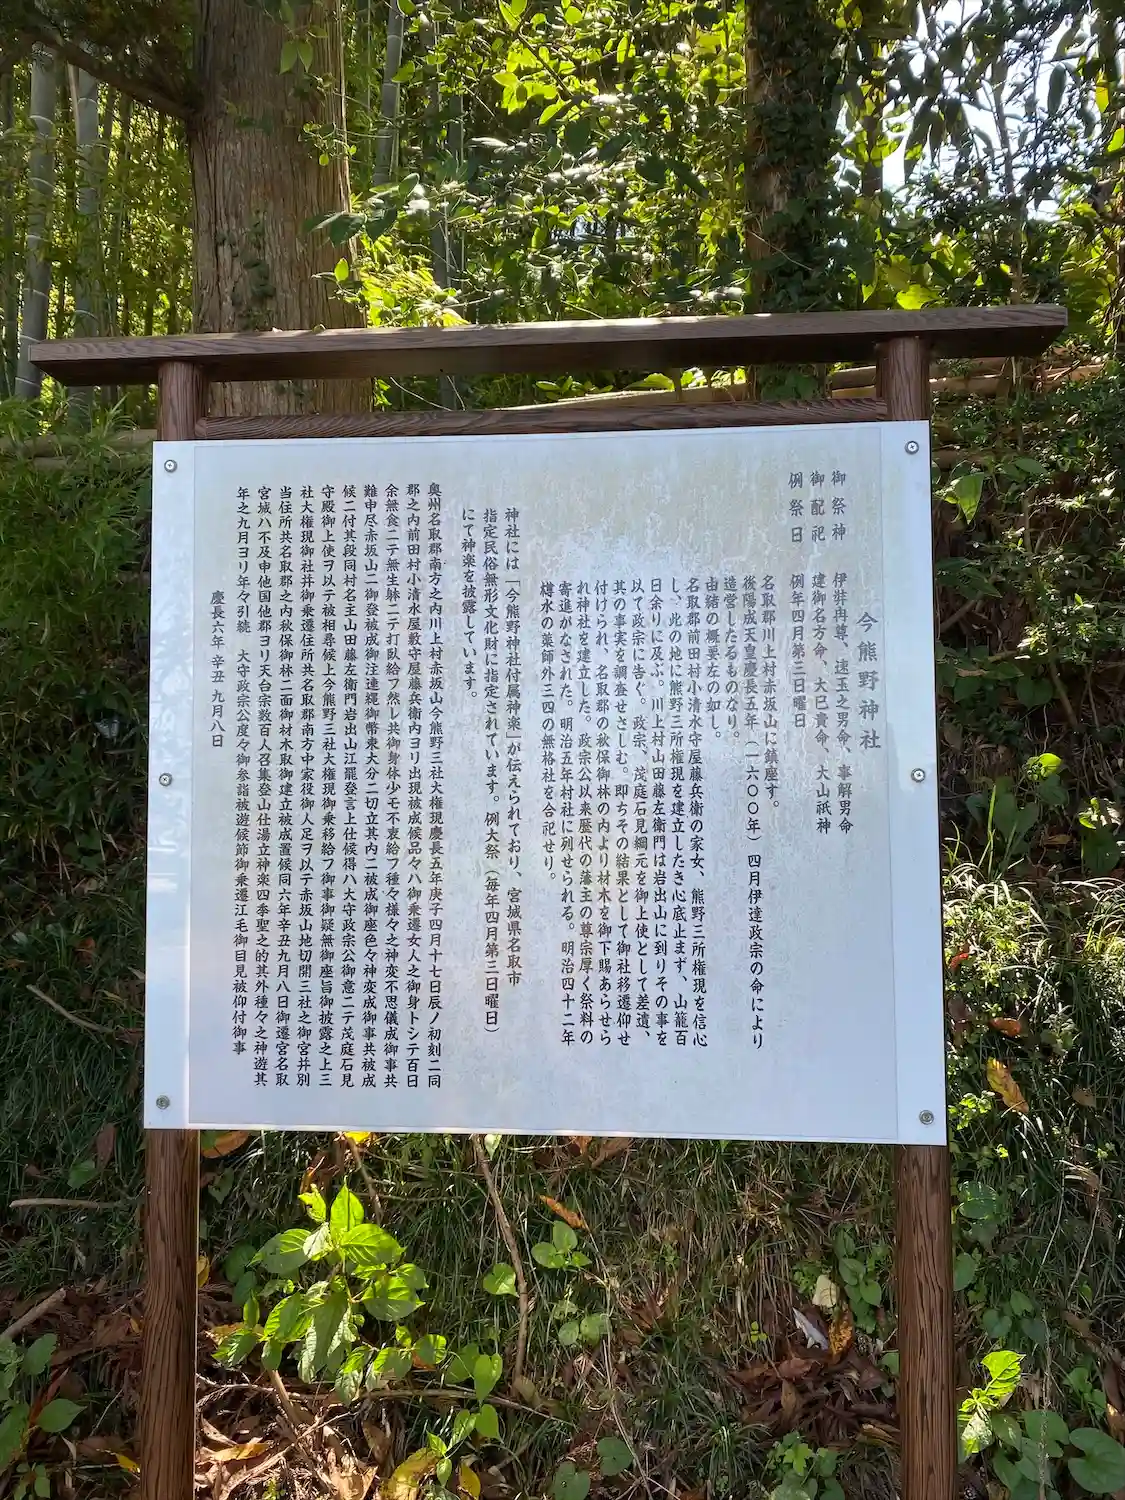 今熊野神社
御祭神 伊弉冉尊、速玉之男命、事解男命
御配祀 建御名方命、大巳貴命、大山祇神
例祭日 例年四月第三日曜日
名取郡川上村赤坂山に鎮座す。
後陽成天皇慶長五年（一六〇〇年）四月伊達政宗の命により
造営したるものなり。
由緒の概要左の如し。
名取郡前田村小清水守屋藤兵衛の家女、熊野三所権現を信心
し、此の地に熊野三所権現を建立したき心底止まず、山籠百
日余りに及ぶ。川上村山田藤左衛門は岩出山に到りその事を
以て政宗に告ぐ。政宗、茂庭石見綱元を御上使として差遣、
其の事実を調査せさしむ。即ちその結果として御社移遷仰せ
付けられ、名取郡の秋保御林の内より材木を御下賜あらせら
れ神社を建立した。政宗公以来歴代の藩主の尊宗厚く祭料の
寄進がなされた。明治五年村社に列せられる。明治四十二年
樽水の薬師外三四の無格社を合祀せり。
神社には「今熊野神社付属神楽」が伝えられており、宮城県名取市
指定民俗無形文化財に指定されています。例大祭（毎年四月第三日曜日）
にて神楽を披露しています。
奥州名取郡南方之内川上村赤坂山今熊野三社大権現慶長五年庚子四月十七日辰ノ初刻二同
郡之内前田村小清水屋敷守屋藤兵衛内ヨリ出現被成候品々ハ御乗遷女人之御身トシテ百日
余無食二テ無生躰二テ打臥給フ然レ共御身体少モ不衰給フ種々様々之神変不思儀成御事共
難申尽赤坂山二御登被成御注連縄御幣束大分二切立其内二被成御座色々神変成御事共被成
候二付其段同村名主山田藤左衛門岩出山江罷登言上仕候得ハ大守政宗公御意二テ茂庭石見
守殿御上使ヲ以テ被相尋候上今熊野三社大権現御乗移給フ御事御疑無御座旨御披露之上三
社大権現御社并御乗遷住所共名取郡南方中家役御人足ヲ以テ赤坂山地切開三社之御宮并別
当住所共名取郡之内秋保御林二面御材木取御建立被成置候同六年辛丑九月八日御遷宮名取
宮城ハ不及申他国他郡ヨリ天台宗数百人召集登山仕湯立神楽四季聖之的其外種々之神遊其
年之九月ヨリ年々引続 大守政宗公度々御参詣被遊候節御乗遷江毛御目見被仰付御事
慶長六年 辛丑 九月八日